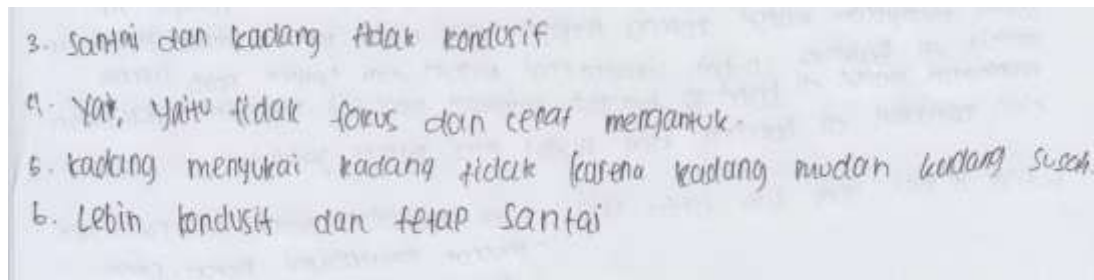 3. Santai dan kadang tidak kondusif
4. Yak, Yaitu tidak fokus dan cepat mengantuk.
5. kadang menyukai kadang tidak karena kadang mudah kadang susah.
6. Lebih kondusif dan tetap santai